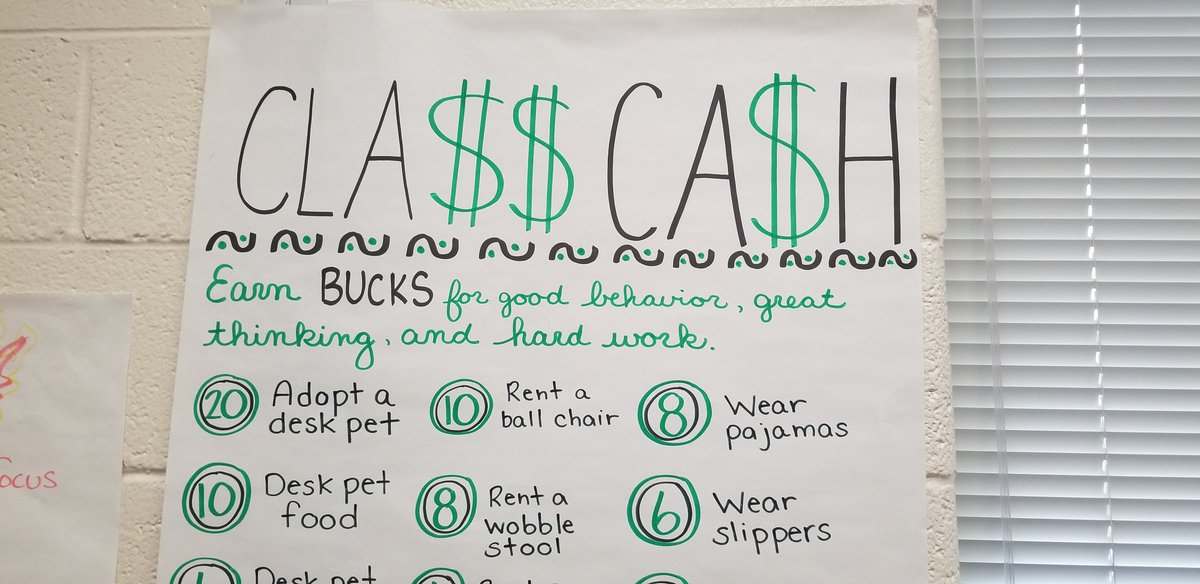 CLA$$ CA$H
Earn BUCKS for good behavior, great
thinking, and hard work.
20 Adopt a
desk pet
10 Rent a
ball chair
8 Wear
pajamas
10 Desk pet
food
8 Rent a
wobble
stool
6 Wear
slippers
Desk pet